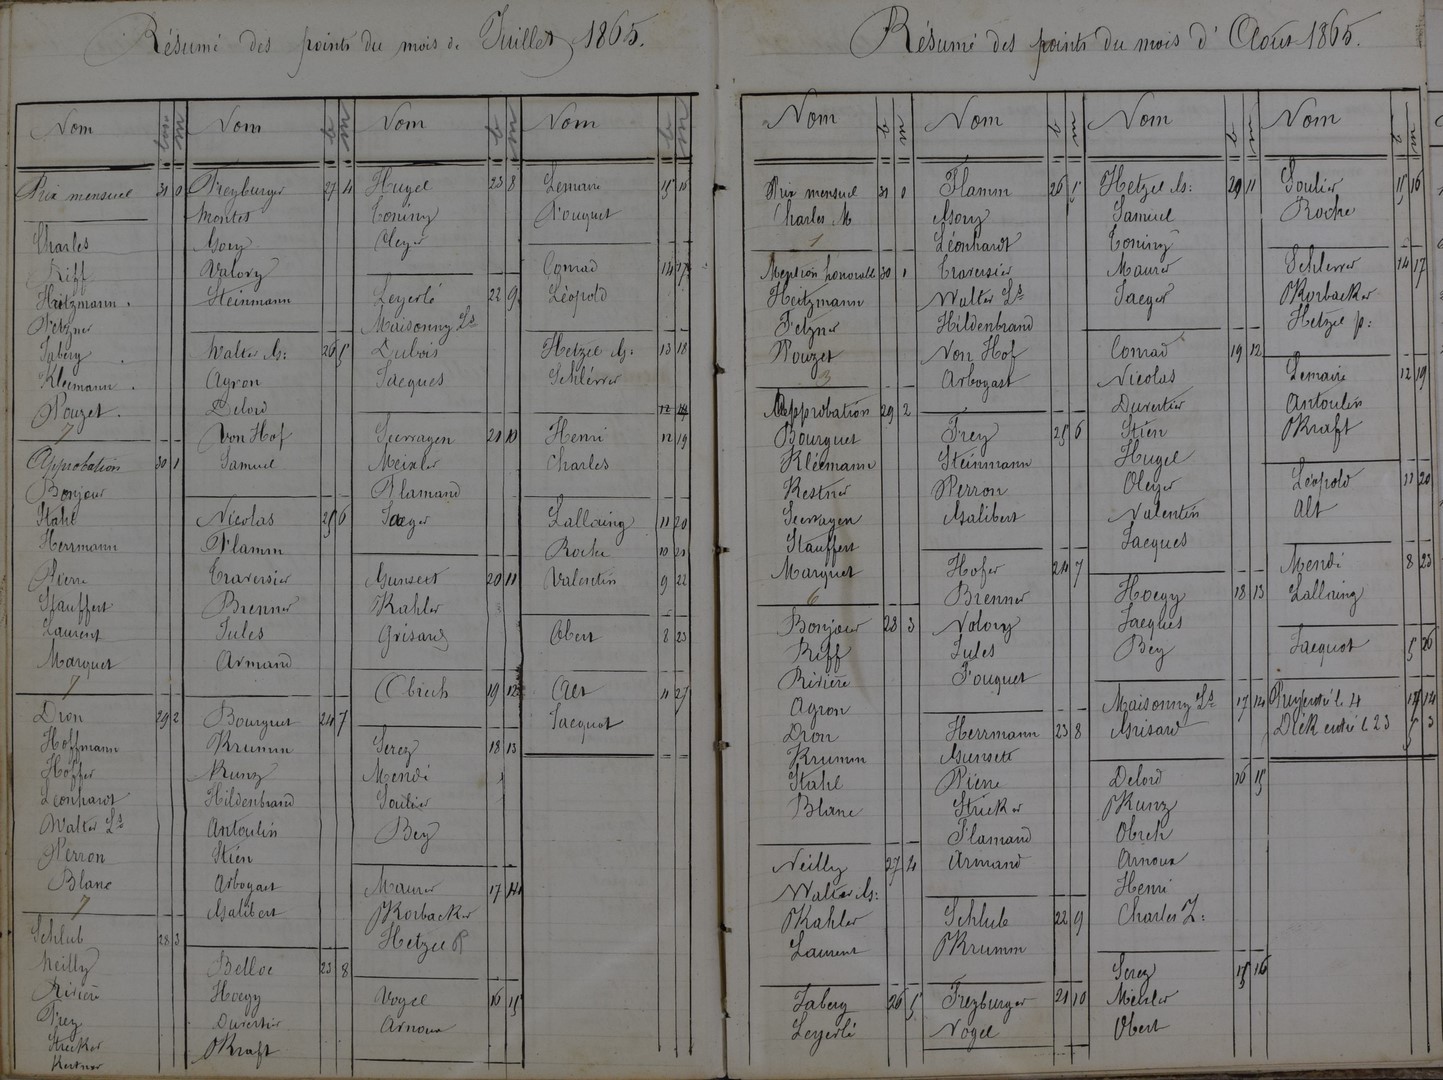 Résumé des points du mois de Juillet 1865.
Nom bon m
Prix mensuel 31 0
Charles
Riff
Heitzmann.
Fetzner
Faberg.
Kleimann.
Pouzet.
7
Approbation 30 1
Bonjour
Stahl
Herrmann
Pierre
Stauffert
Laurent
Marquet
7
Dron 29 2
Hoffmann
Hoffer
Léonhardt
Walter Ls
Perron
Blanc
7
Schlub 28 3
Neilly
Rivière
Frey
Stricker
Kestner
Nom b m
Freyburger 27 4
Montes
Gory
Valory
Steinmann
Walter G: 26 5
Agron
Delord
Von Hof
Samuel
Nicolas 25 6
Flamm
Traversier
Brenner
Jules
Armand
Bourguet 24 7
Krumm
Kunz
Hildenbrand
Antoulin
Stien
Arbogast
Galibert
Belloc 23 8
Hoegy
Duvestier
Kraft
Nom b m
Hugel 23 8
Toniny
Oleyer
Leyerlé 22 9
Maisonny Ls
Dubois
Jacques
Seevagen 21 10
Meixler
Flamand
Jaeger
Gunsett 20 11
Kahler
Grisard
Obrech 19 12
Serez 18 13
Mendi
Soulier
Bey
Maurer 17 14
Korbacker
Hetzel P
Vogel 16 15
Arnoux
Nom b m
Lemaire 15 16
Fouquet
Conrad 14 17
Léopold
Hetzel G. 13 18
Schlerrer
12 19
Henri 12 19
Charles
Lallaing 11 20
Roche 10 21
Valentin 9 22
Obert 8 23
Alt 4 27
Jacquot
Résumé des points du mois d'Août 1865.
Nom b m
Prix mensuel 31 0
Charles M
1
Mention honorable 30 1
Heitzmann
Fetzner
Pouzet
3
Approbation 29 2
Bourguet
Kléemann
Kestner
Seevagen
Stauffert
Marquet
6
Bonjour 28 3
Riff
Rivière
Agron
Dron
Krumm
Stahl
Blanc
Neilly 27 4
Walter G:
Kahler
Laurent
Faberg 26 5
Leyerlé
Nom b m
Flamm 26 5
Gory
Léonhardt
Traversier
Walter Ls
Hildenbrand
Von Hof
Arbogast
Frey 25 6
Steinmann
Perron
Galibert
Hofer 24 7
Brenner
Valory
Jules
Fouquet
Herrmann 23 8
Gunsett
Pierre
Stricker
Flamand
Armand
Schlub 22 9
Krumm
Freyburger 21 10
Vogel
Nom b m
Hetzel G: 20 11
Samuel
Toniny
Maurer
Jaeger
Conrad 19 12
Nicolas
Duvestier
Stien
Hugel
Oleyer
Valentin
Jacques
Hoegy 18 13
Jacques
Bey
Maisonny Ls 17 14
Grisard
Delord 16 15
Kunz
Obrech
Arnoux
Henri
Charles L:
Serez 15 16
Meixler
Obert
Nom b m
Soulier 15 16
Roche
Schlerrer 14 17
Korbacker
Hetzel p:
Lemaire 12 19
Antoulin
Kraft
Léopold 11 20
Alt
Mendi 8 23
Lallaing
Jacquot 5 26
entré l. 4 14
Dick entré l. 23 5 3